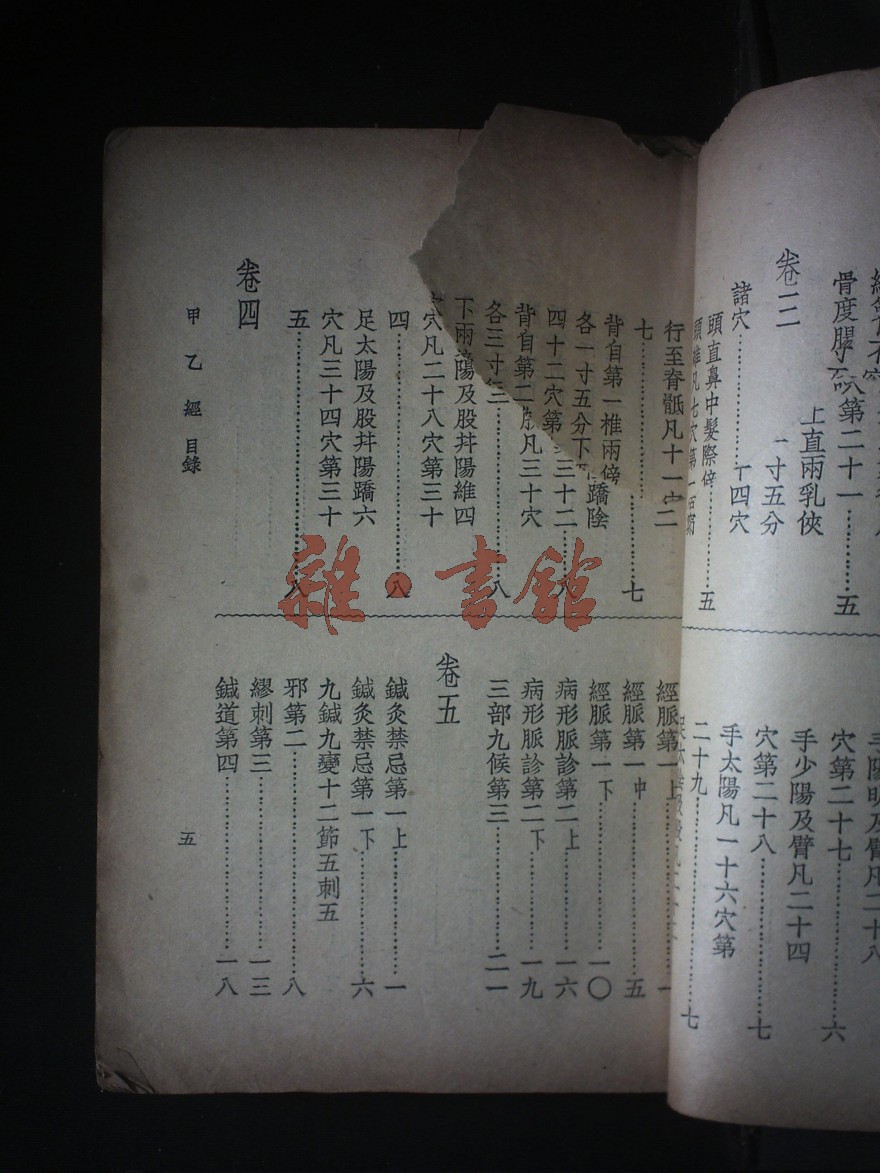 骨度腸
第二十一……五
上直兩乳俠
一寸五分
卷三
諸穴……十四穴
頭直鼻中髮際傍……五
手陽明及臂凡二十八
穴第二十七……六
手少陽及臂凡二十四
穴第二十八……七
手太陽凡一十六穴第
二十九……七
行至脊骶凡十一穴
七……七
背自第一椎兩傍
各一寸五分下
四十二穴第
背自第二
凡三十穴
各三寸
三十二……八
下兩
陽及股并陽維四
穴凡二十八穴第三十
四……八
足太陽及股并陽蹻六
穴凡三十四穴第三十
五……八
卷四
經脈第一上……一
經脈第一中……五
經脈第一下……一〇
病形脈診第二上……一六
病形脈診第二下……一九
三部九候第三……二一
卷五
鍼灸禁忌第一上……一
鍼灸禁忌第一下……六
九鍼九變十二節五刺五
邪第二……八
繆刺第三……一三
鍼道第四……一八
甲乙經 目錄
五
雜·書館